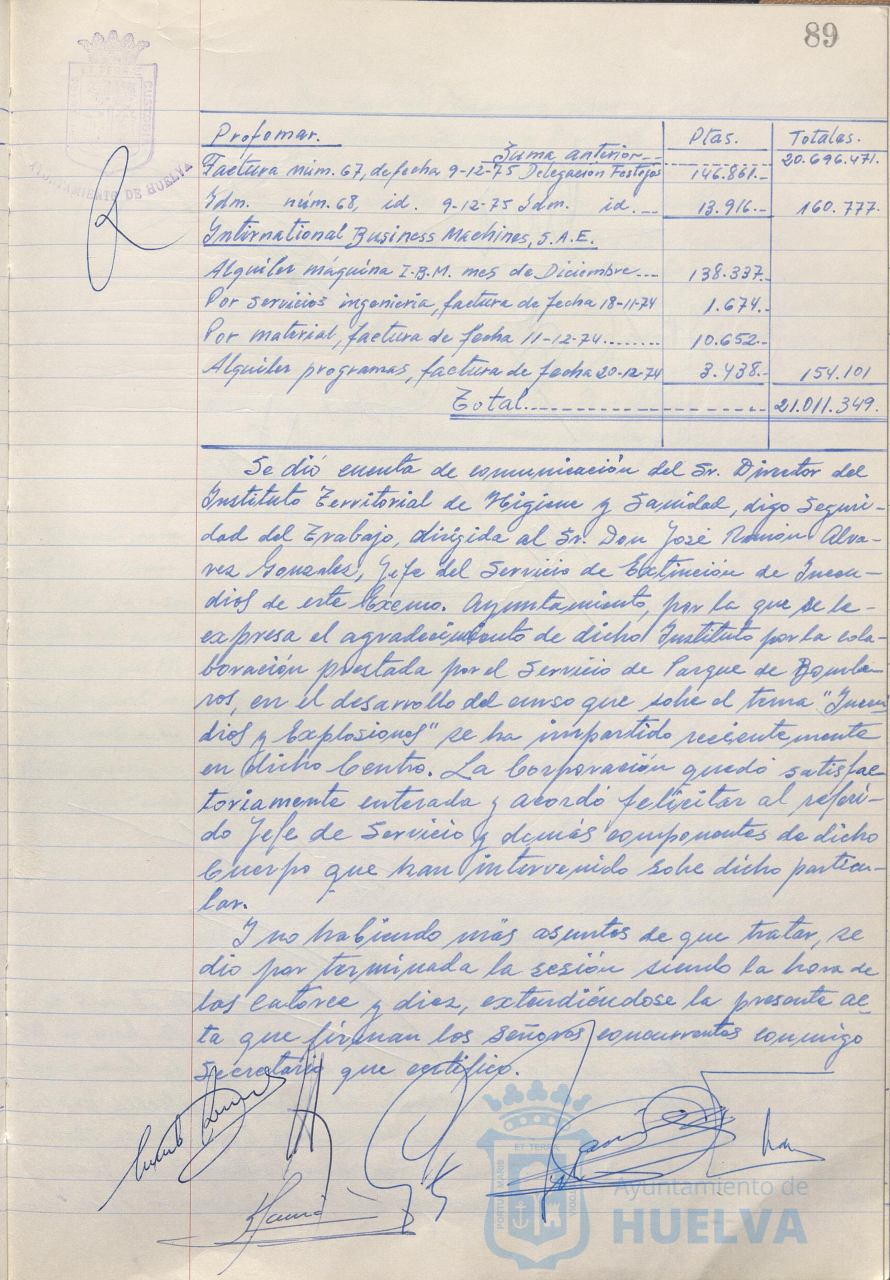 89
Profomar. Ptas. Totales.
Suma anterior 20.696.471.
Factura núm. 67, de fecha 9-12-75 Delegación Festejos 146.861.-
Idm. núm. 68, id. 9-12-75 Idm. id. 13.916.- 160.777.
International Business Machines, S.A.E.
Alquiler máquina I.B.M. mes de Diciembre 138.337.-
Por servicios ingenieria, factura de fecha 18-11-74 1.674.-
Por material, factura de fecha 11-12-74 10.652.-
Alquiler programas, factura de fecha 20-12-74 3.438.- 154.101
Total 21.011.349.
Se dió cuenta de comunicación del Sr. Director del
Instituto Territorial de Higiene y Sanidad, digo Seguri-
dad del Trabajo, dirigida al Sr. Don José Ramón Alva-
rez Gonzalez, Jefe del Servicio de Extinción de Incen-
dios de este Excmo. Ayuntamiento, por la que se le
expresa el agradecimiento de dicho Instituto por la cola-
boración prestada por el Servicio de Parque de Bombe-
ros, en el desarrollo del curso que sobre el tema "Incen-
dios y Explosiones" se ha impartido recientemente
en dicho Centro. La Corporación quedó satisfac-
toriamente enterada y acordó felicitar al referi-
do Jefe de Servicio y demás componentes de dicho
Cuerpo que han intervenido sobre dicho particu-
lar.
Y no habiendo más asuntos de que tratar, se
dio por terminada la sesión siendo la hora de
las catorce y diez, extendiéndose la presente ac-
ta que firman los señores concurrentes conmigo
Secretario que certifico.
AYUNTAMIENTO DE HUELVA
Ayuntamiento de
HUELVA